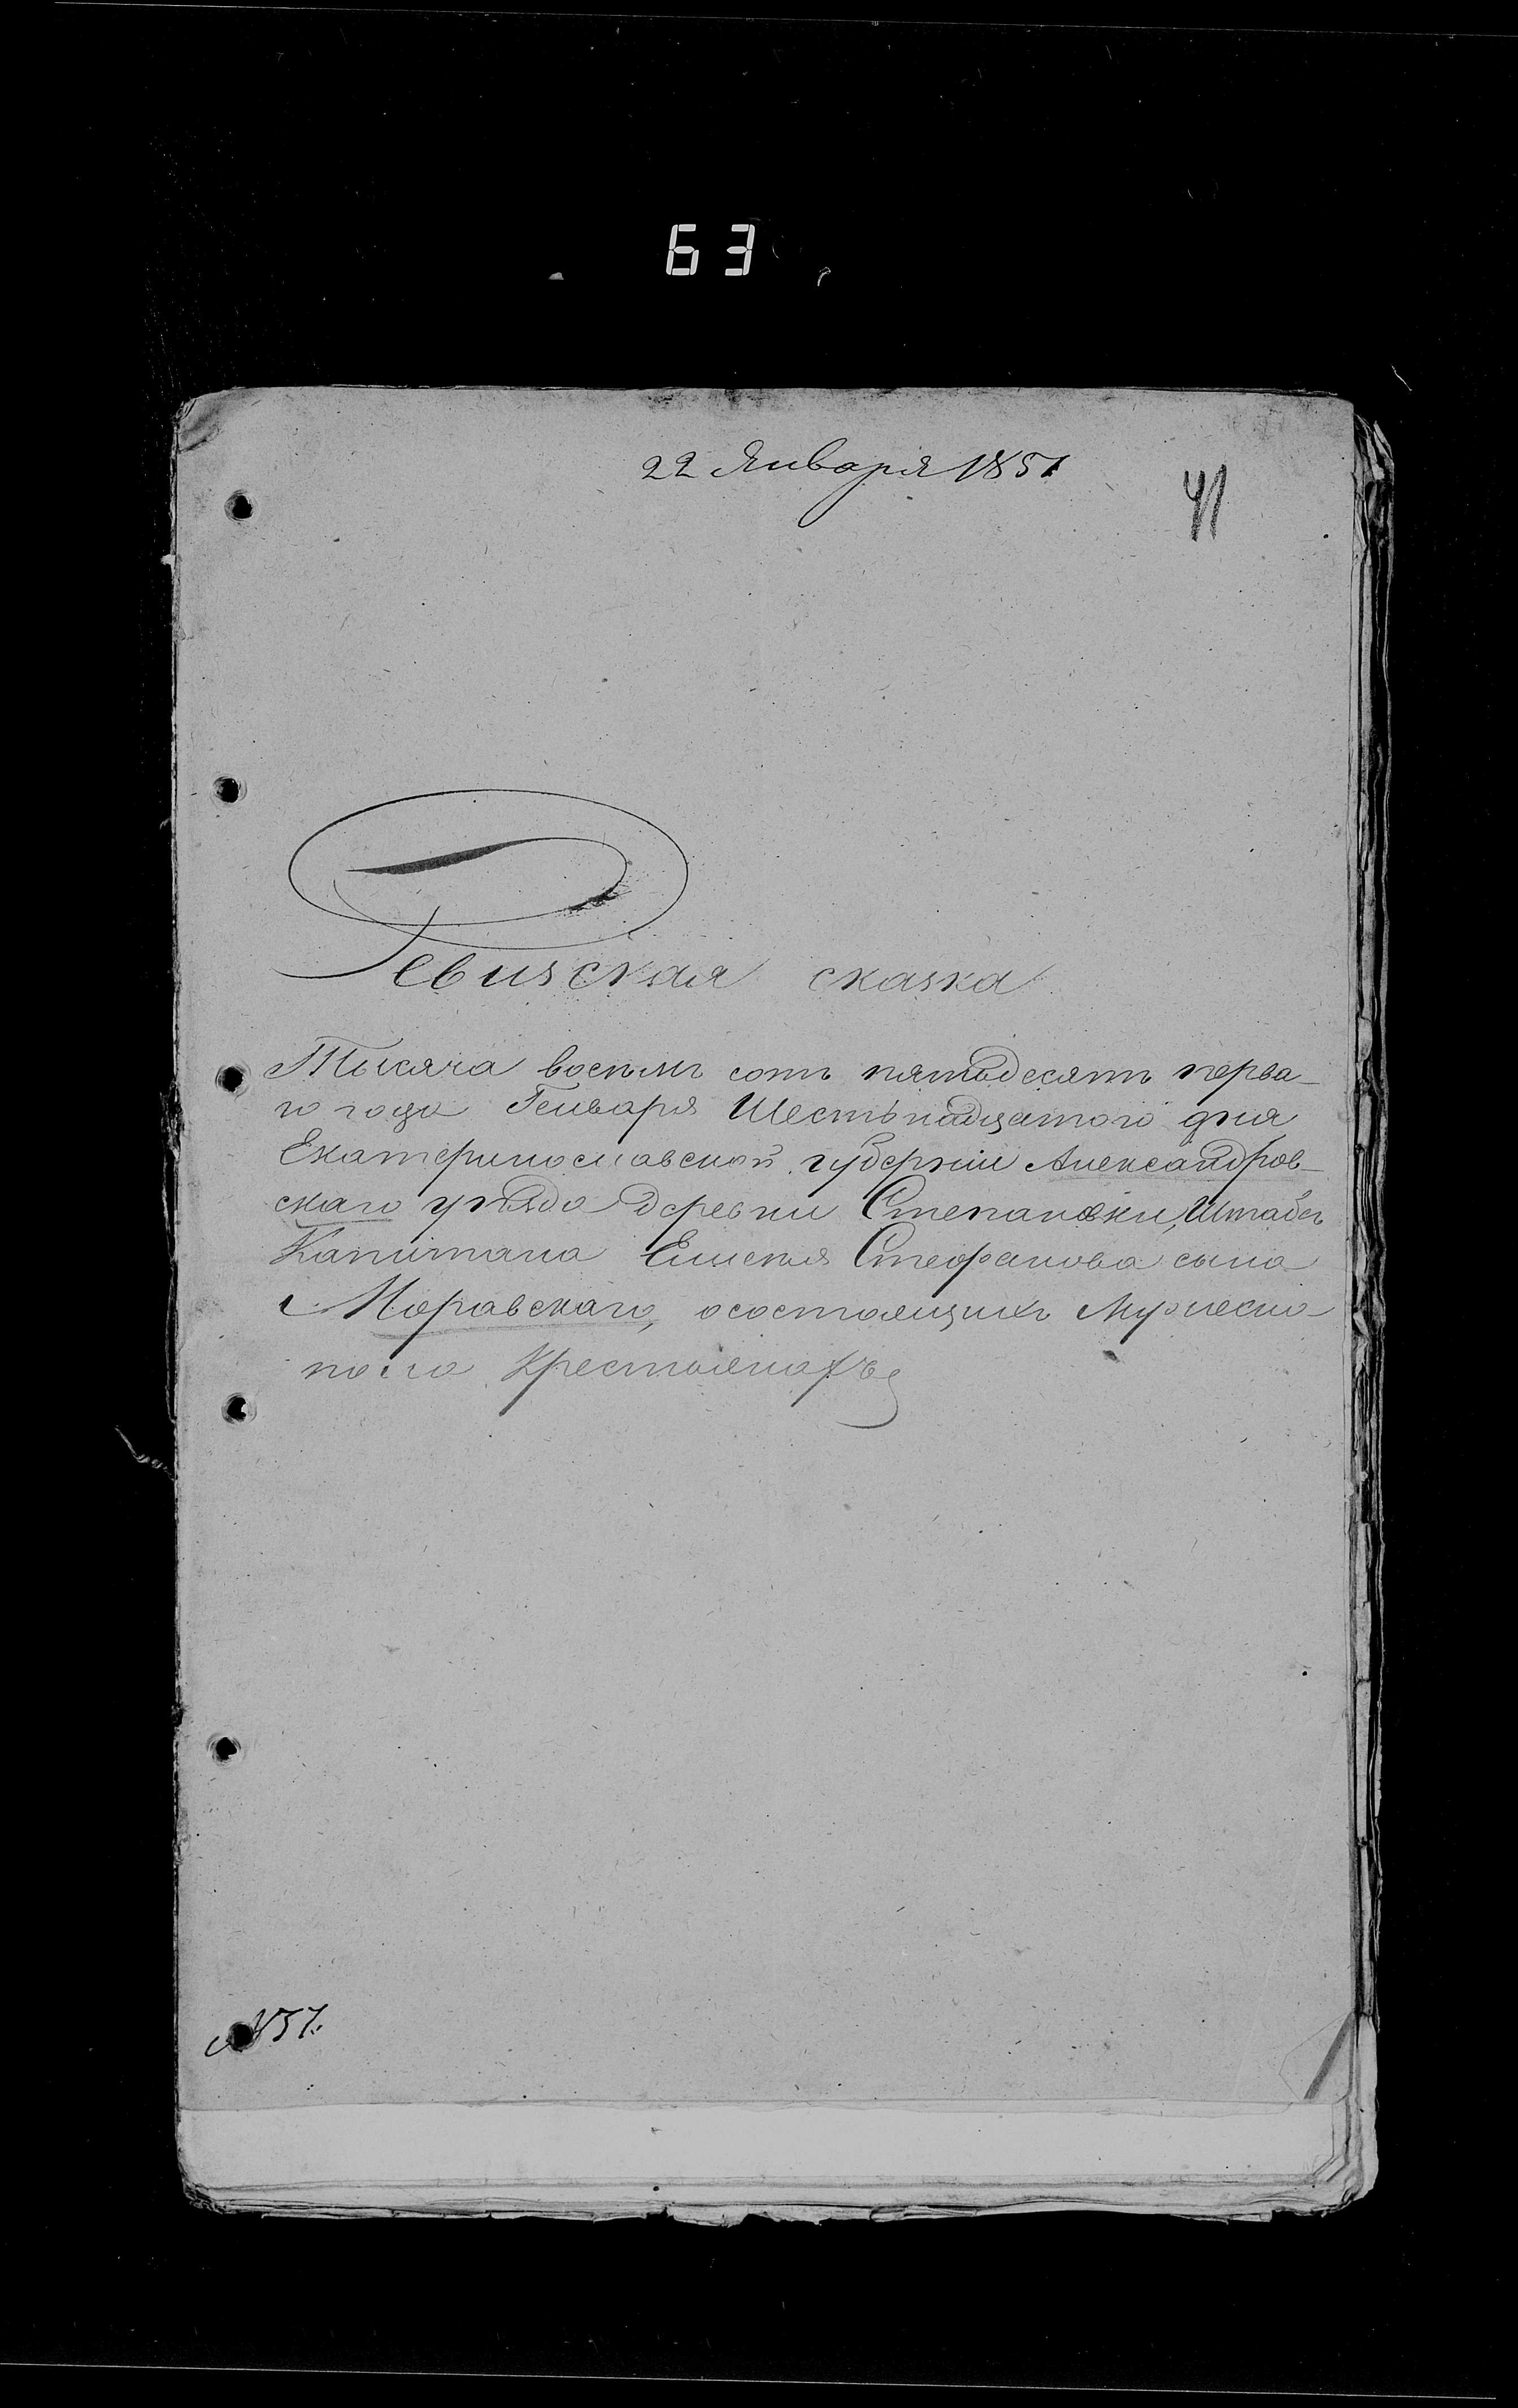 63
22 Января 1851
41
Ревизская сказка
Тысяча восемь сотъ пятьдесятъ перва-
го года Генваря Шестьнадцатого дня
Екатеринославской губерніи Александров-
скаго уѣзда деревни Степановки, Штабсъ
Капитана Елисея Стефанова сына
Моравскаго, осостоящихъ Мужеска
пола Крестьянахъ